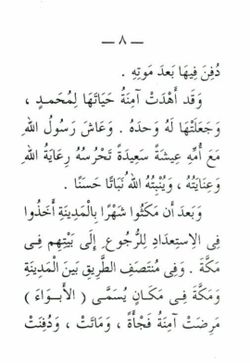 — ٨ —
دُفِنَ فِيهَا بَعدَ مَوتِهِ .
وَقَد أَهْدَتْ آمِنَةُ حَيَاتَهَا لِمُحَمدٍ ،
وَجَعَلَتْهَا لَهُ وَحدَهُ . وَعَاشَ رَسُولُ اللهِ
مَعَ أُمِّهِ عِيشَةً سَعِيدَةً تَحْرُسُهُ رِعَايَةُ اللهِ
وَعِنَايَتُهُ ، وَيُنْبِتُهُ اللهُ نَبَاتًا حَسَنًا .
وَبَعدَ أَن مَكَثُوا شَهْرًا بِالْمَدِينَةِ أَخَذُوا
فِى الِاسْتِعدَادِ لِلرُّجُوعِ إِلَى بَيْتِهِم فِى
مَكَّةَ . وَفِى مُنْتَصَفِ الطَّرِيقِ بَينَ الْمَدِينَةِ
وَمَكَّةَ فِى مَكَانٍ يُسَمَّى ( الأَبوَاءَ )
مَرِضَتْ آمِنَةُ فَجْأَةً ، وَمَاتَتْ ، وَدُفِنَتْ